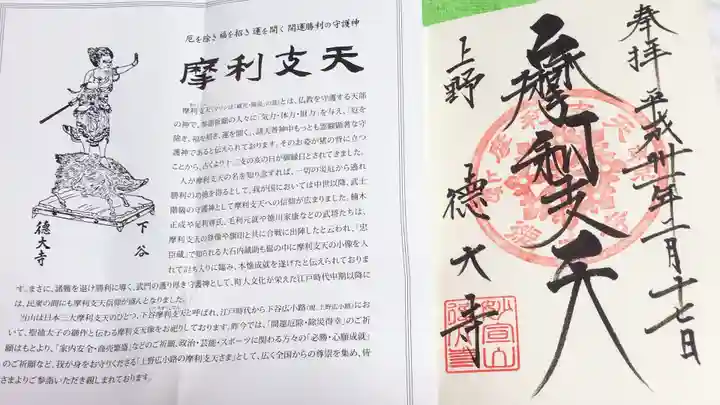 厄を除き福を招き運を開く開運勝利の守護神
摩利支天
下谷
徳大寺
摩利支天(マリシは「威光・陽炎」の意)とは、仏教を守護する天部
の神で、参詣祈願の人々に「気力・体力・財力」を与え、「厄を
除き、福を招き、運を開く、諸天善神中もっとも霊験顕著な守
護神であると伝えられております。そのお姿が猪の背に立つ
ことから、古くより十二支の亥の日が御縁日とされてきました。
人が摩利支天の名を知り念ずれば、一切の災厄から逃れ
勝利の功徳を得るとして、我が国においては中世以降、武士
階級の守護神として摩利支天への信仰が広まりました。楠木
正成や足利尊氏、毛利元就や徳川家康などの武将たちは、
摩利支天の尊像や旗印と共に合戦に出陣したと云われ、「忠
臣蔵」で知られる大石内蔵助も髷の中に摩利支天の小像を入
れて討ち入りに臨み、本懐成就を遂げたと伝えられておりま
す。まさに、諸難を退け勝利に導く、武門の護り厚き守護神として、町人文化が栄えた江戸時代中期以降に
は、民衆の間にも摩利支天信仰が盛んとなりました。
当山は日本三大摩利支天のひとつ、下谷摩利支天と呼ばれ、江戸時代から下谷広小路(現、上野広小路)にお
いて、聖徳太子の御作と伝わる摩利支天像をお祀りしております。昨今では、「開運厄除・除災得幸」のご祈
願はもとより、「家内安全・商売繁盛」などのご祈願、政治・芸能・スポーツに関わる方々の「必勝・心願成就」
のご祈願など、我が身をお守りくださる「上野広小路の摩利支天さま」として、広く全国からの尊崇を集め、皆
さまよりご参詣いただき親しまれております。
奉拝 平成卅一年二月十七日
摩利支天
上野 徳大寺